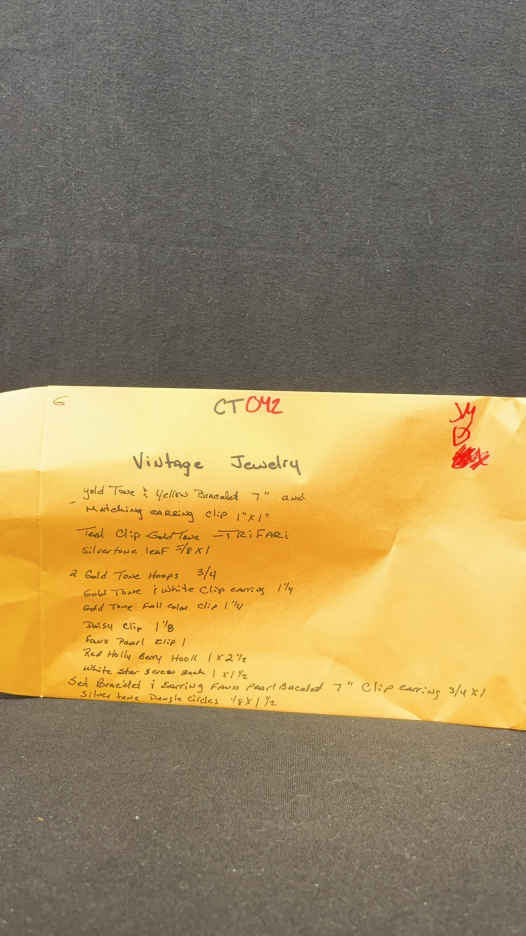 6
CT042
Vintage Jewelry
gold Tone & Yellow Bracelet 7" and
Matching earring Clip 1"x1"
Teal Clip Gold Tone - TRiFARi
Silvertone leaf 5/8 x 1
2 Gold Tone Hoops 3/4
Gold Tone & White Clip earring 1 1/4
Gold Tone Fall color Clip 1 1/4
Daisy Clip 1 1/8
Faux Pearl Clip 1
Red Holly Berry Hook 1 x 2 1/2
White Star Screw Back 1 x 1 1/2
Set Bracelet & Earring Faux Pearl Bracelet 7" Clip earring 3/4 x 1
Silver tone Dangle Circles 1/8 x 1 1/2